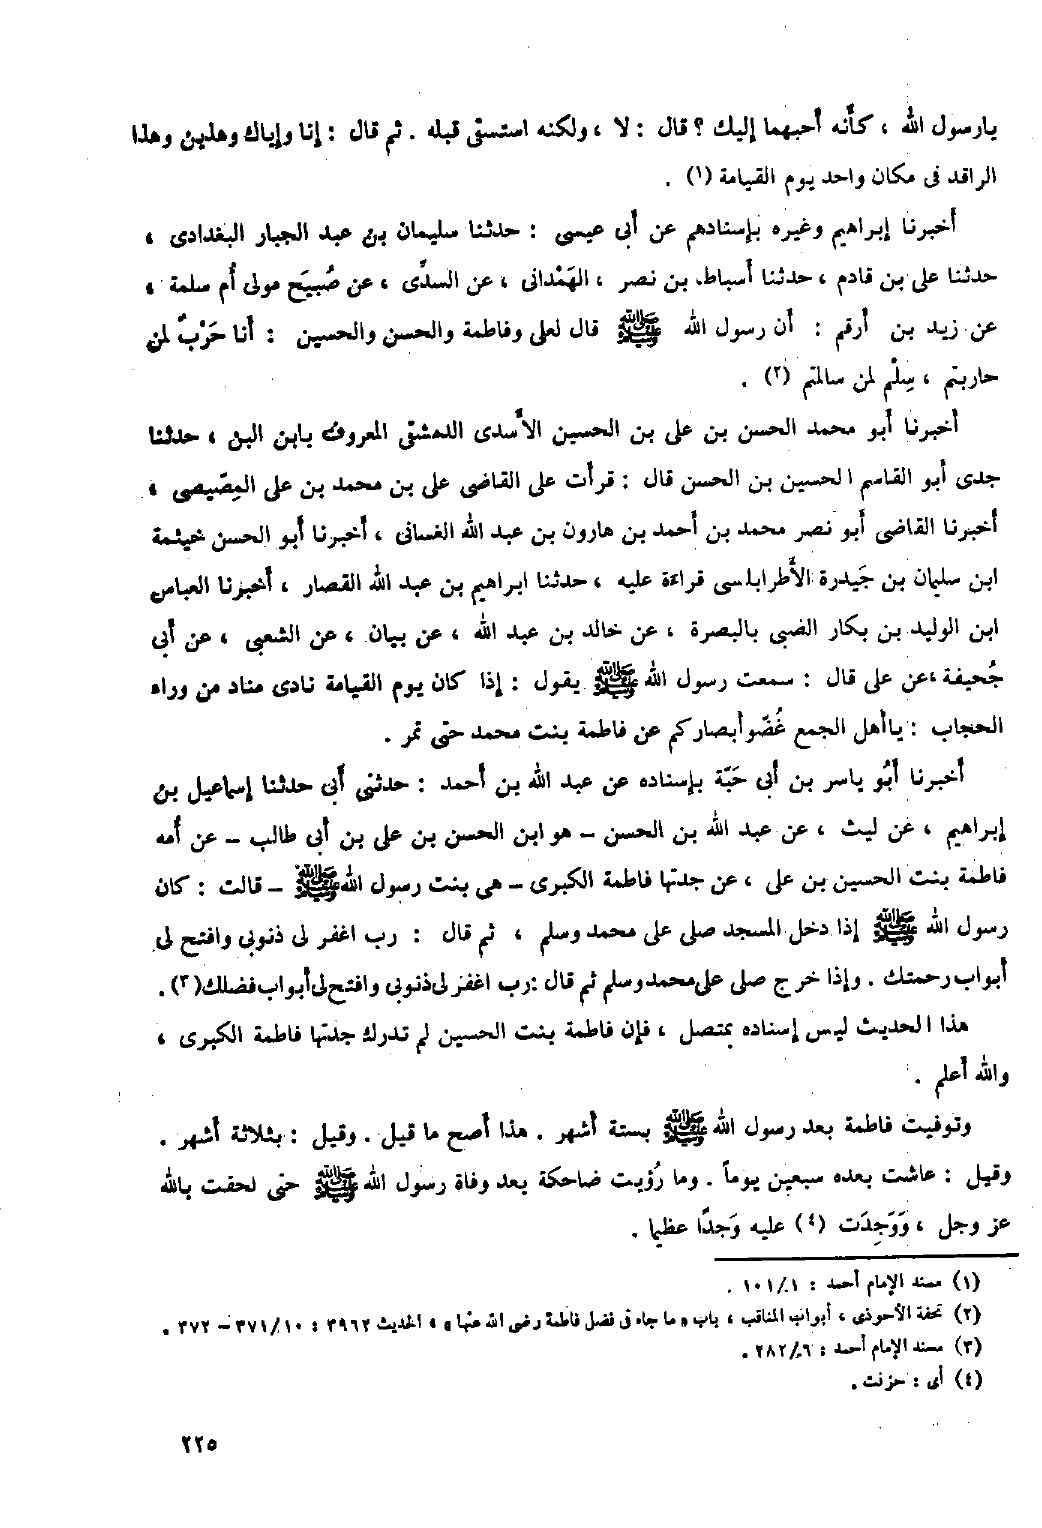 يارسول الله ، كأنه أحبهما إليك ؟ قال : لا ، ولكنه استسقى قبله . ثم قال : إنا وإياك وهذين وهذا
الراقد فى مكان واحد يوم القيامة (١) .
أخبرنا إبراهيم وغيره بإسنادهم عن أبى عيسى : حدثنا سليمان بن عبد الجبار البغدادى ،
حدثنا على بن قادم ، حدثنا أسباط بن نصر ، الهَمْدانى ، عن السدِّى ، عن صُبيَح مولى أُم سلمة ،
عن زيد بن أرقم : أن رسول الله ﷺ قال لعلى وفاطمة والحسن والحسين : أنا حَرْبٌ لمن
حاربتم ، سِلْم لمن سالمتم (٢) .
أخبرنا أبو محمد الحسن بن على بن الحسين الأسدى الدمشقى المعروف بابن البن ، حدثنا
جدى أبو القاسم الحسين بن الحسن قال : قرأت على القاضى على بن محمد بن على المِصّيصى ،
أخبرنا القاضى أبو نصر محمد بن أحمد بن هارون بن عبد الله الغسانى ، أخبرنا أبو الحسن خيثمة
ابن سليمان بن حَيدرة الأَطرابلسى قراءة عليه ، حدثنا ابراهيم بن عبد الله القصار ، أخبرنا العباس
ابن الوليد بن بكار الضبى بالبصرة ، عن خالد بن عبد الله ، عن بيان ، عن الشعبى ، عن أبى
جُحيفة ،عن على قال : سمعت رسول الله ﷺ يقول : إذا كان يوم القيامة نادى مناد من وراء
الحجاب : ياأهل الجمع غُضّوأبصاركم عن فاطمة بنت محمد حتى تمر .
أخبرنا أبُو ياسر بن أبى حَبّة بإسناده عن عبد الله بن أحمد : حدثنى أبى حدثنا إسماعيل بن
إبراهيم ، عن ليث ، عن عبد الله بن الحسن – هو ابن الحسن بن على بن أبى طالب – عن أُمه
فاطمة بنت الحسين بن على ، عن جدتها فاطمة الكبرى – هى بنت رسول الله ﷺ – قالت : كان
رسول الله ﷺ إذا دخل المسجد صلى على محمد وسلم ، ثم قال : رب اغفر لى ذنوبى وافتح لى
أبواب رحمتك . وإذا خرج صلى على محمد وسلم ثم قال :رب اغفر لى ذنوبى وافتح لى أبواب فضلك(٣) .
هذا الحديث ليس إسناده بمتصل ، فإن فاطمة بنت الحسين لم تدرك جدتها فاطمة الكبرى ،
والله أعلم .
وتوفيت فاطمة بعد رسول الله ﷺ بستة أشهر . هذا أصح ما قيل . وقيل : بثلاثة أشهر .
وقيل : عاشت بعده سبعين يوماً . وما رُؤيت ضاحكة بعد وفاة رسول الله ﷺ حتى لحقت بالله
عز وجل ، وَوَجِدَت (٤) عليه وَجدًا عظيما .
(١) مسند الإمام أحمد : ١/ ١٠١ .
(٢) تحفة الأحوذى ، أبواب المناقب ، باب « ما جاء فى فضل فاطمة رضى الله عنها » ، الحديث ٣٩٦٢ : ١٠/ ٣٧١ – ٣٧٢ .
(٣) مسند الإمام أحمد : ٦/ ٢٨٢ .
(٤) أى : حزنت .
٢٢٥